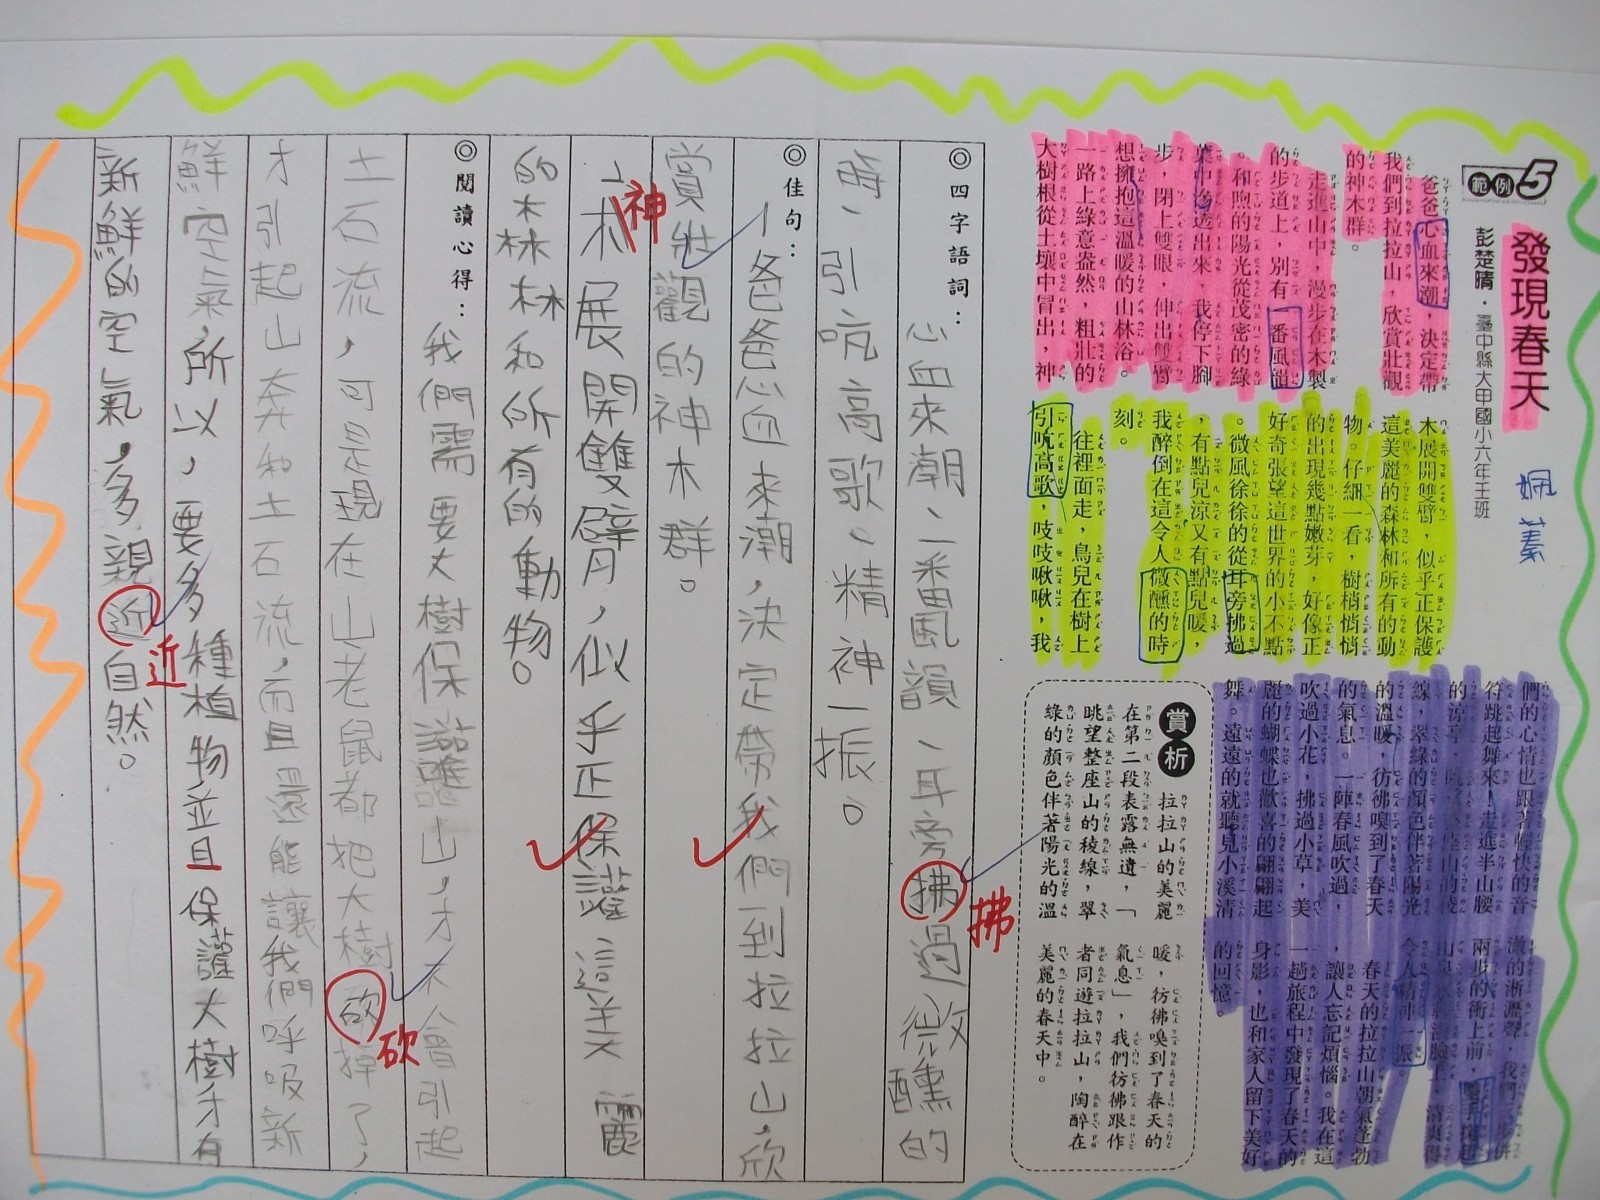 範例5
發現春天
彭楚晴．臺中縣大甲國小六年王班
姵蓁
爸爸心血來潮，決定帶
我們到拉拉山，欣賞壯觀
的神木群。
走進山中，漫步在木製
的步道上，別有一番風韻
。和煦的陽光從茂密的綠
葉中滲透出來，我停下腳
步，閉上雙眼，伸出雙臂
想擁抱這溫暖的山林浴。
一路上綠意盎然，粗壯的
大樹根從土壤中冒出，神
木展開雙臂，似乎正保護
這美麗的森林和所有的動
物。仔細一看，樹梢悄悄
的出現幾點嫩芽，好像正
好奇張望這世界的小不點
。微風徐徐的從耳旁拂過
，有點兒涼又有點兒暖，
我醉倒在這令人微醺的時
刻。
往裡面走，鳥兒在樹上
引吭高歌，吱吱啾啾，我
們的心情也跟著輕快的音
符跳起舞來！走進半山腰
的涼亭，
線，翠綠的顏色伴著陽光
的溫暖，彷彿嗅到了春天
的氣息。一陣春風吹過，
吹過小花，拂過小草，美
麗的蝴蝶也歡喜的翩翩起
舞。遠遠的就聽見小溪清
澈的淅瀝聲，我們
兩步的衝上前，
令人精神一振
春天的拉拉山朝氣蓬勃
，讓人忘記煩惱。我在這
一趟旅程中發現了春天的
身影，也和家人留下美好
的回憶。
賞析
拉拉山的美麗
在第二段表露無遺，「
眺望整座山的稜線，翠
綠的顏色伴著陽光的溫
暖，彷彿嗅到了春天的
氣息」，我們彷彿跟作
者同遊拉拉山，陶醉在
美麗的春天中。
◎四字語詞：
心血來潮、一番風韻、耳旁拂過微醺的
拂
時、引吭高歌、精神一振。
◎佳句：
1.爸爸心血來潮，決定帶我們到拉拉山，欣
賞壯觀的神木群。
神
木展開雙臂，似乎正保護這美麗
的森林和所有的動物。
◎閱讀心得：
我們需要大樹保護山，才不會引起
土石流，可是現在山老鼠都把大樹砍掉了，
砍
才引起山奔和土石流，而且還能讓我們呼吸新
鮮空氣，所以，要多種植物並且保護大樹才有
新鮮的空氣，多親近自然。
近